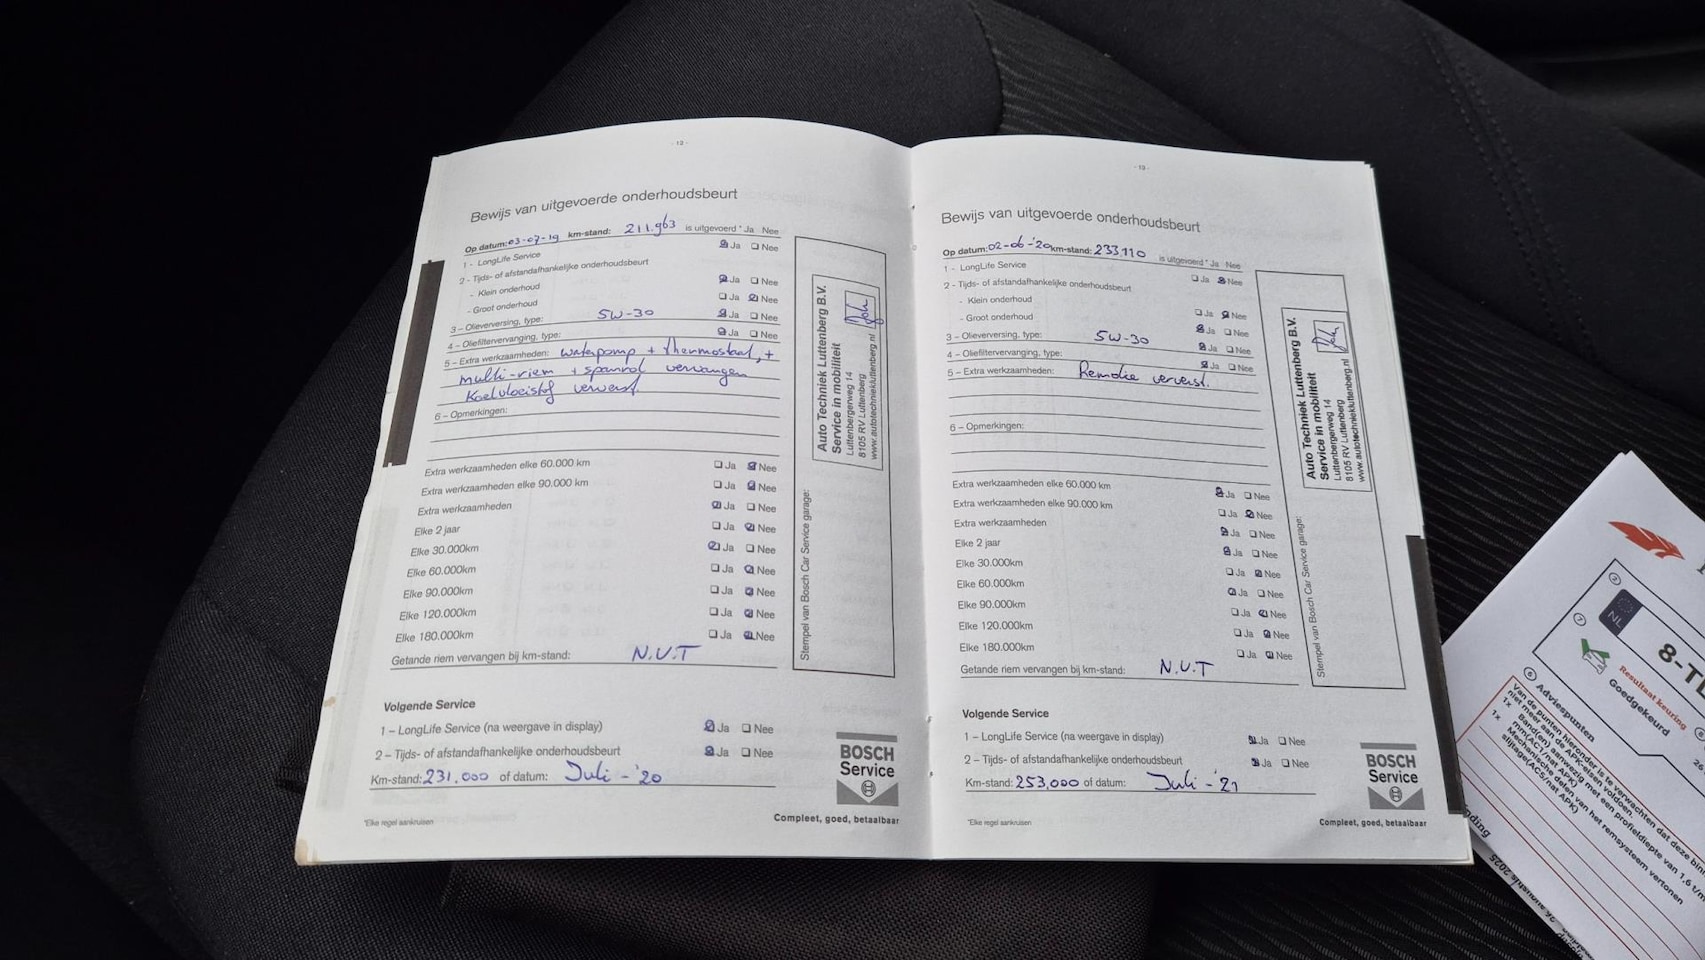 - 12 -
Bewijs van uitgevoerde onderhoudsbeurt
Op datum: 03-07-19 km-stand: 211.963 is uitgevoerd * Ja Nee
1 - LongLife Service Ja Nee
2 - Tijds- of afstandafhankelijke onderhoudsbeurt
- Klein onderhoud Ja Nee
- Groot onderhoud Ja Nee
3 – Olieverversing, type: 5W-30 Ja Nee
4 – Oliefiltervervanging, type: Ja Nee
5 – Extra werkzaamheden: waterpomp + thermostaat, +
multi-riem + spanrol vervangen
Koelvloeistof ververst.
6 – Opmerkingen:
Extra werkzaamheden elke 60.000 km Ja Nee
Extra werkzaamheden elke 90.000 km Ja Nee
Extra werkzaamheden Ja Nee
Elke 2 jaar Ja Nee
Elke 30.000km Ja Nee
Elke 60.000km Ja Nee
Elke 90.000km Ja Nee
Elke 120.000km Ja Nee
Elke 180.000km Ja Nee
Getande riem vervangen bij km-stand: N.V.T
Volgende Service
1 – LongLife Service (na weergave in display) Ja Nee
2 – Tijds- of afstandafhankelijke onderhoudsbeurt Ja Nee
Km-stand: 231.000 of datum: Juli - '20
*Elke regel aankruisen
Auto Techniek Luttenberg B.V.
Service in mobiliteit
Luttenbergerweg 14
8105 RV Luttenberg
www.autotechniekluttenberg.nl
Stempel van Bosch Car Service garage:
BOSCH
Service
Compleet, goed, betaalbaar
- 13 -
Bewijs van uitgevoerde onderhoudsbeurt
Op datum: 02-06-'20 km-stand: 233.110 is uitgevoerd * Ja Nee
1 - LongLife Service Ja Nee
2 - Tijds- of afstandafhankelijke onderhoudsbeurt
- Klein onderhoud Ja Nee
- Groot onderhoud Ja Nee
3 – Olieverversing, type: 5W-30 Ja Nee
4 – Oliefiltervervanging, type: Ja Nee
5 – Extra werkzaamheden: Remolie ververst.
6 – Opmerkingen:
Extra werkzaamheden elke 60.000 km Ja Nee
Extra werkzaamheden elke 90.000 km Ja Nee
Extra werkzaamheden Ja Nee
Elke 2 jaar Ja Nee
Elke 30.000km Ja Nee
Elke 60.000km Ja Nee
Elke 90.000km Ja Nee
Elke 120.000km Ja Nee
Elke 180.000km Ja Nee
Getande riem vervangen bij km-stand: N.V.T
Volgende Service
1 – LongLife Service (na weergave in display) Ja Nee
2 – Tijds- of afstandafhankelijke onderhoudsbeurt Ja Nee
Km-stand: 253.000 of datum: Juli - '21
*Elke regel aankruisen
Auto Techniek Luttenberg B.V.
Service in mobiliteit
Luttenbergerweg 14
8105 RV Luttenberg
www.autotechniekluttenberg.nl
Stempel van Bosch Car Service garage:
BOSCH
Service
Compleet, goed, betaalbaar
NL
8-T
Resultaat keuring
Goedgekeurd
Adviespunten
Van de punten hieronder is te verwachten dat deze
niet meer aan de APK-eisen voldoen.
1x Band(en) aanwezig met een profieldiepte van 1,6 t/m
mm(AC1/nat APK)
1x Mechanische delen van het remsysteem vertonen
slijtage(AC5/nat APK)
26 augustus 2025